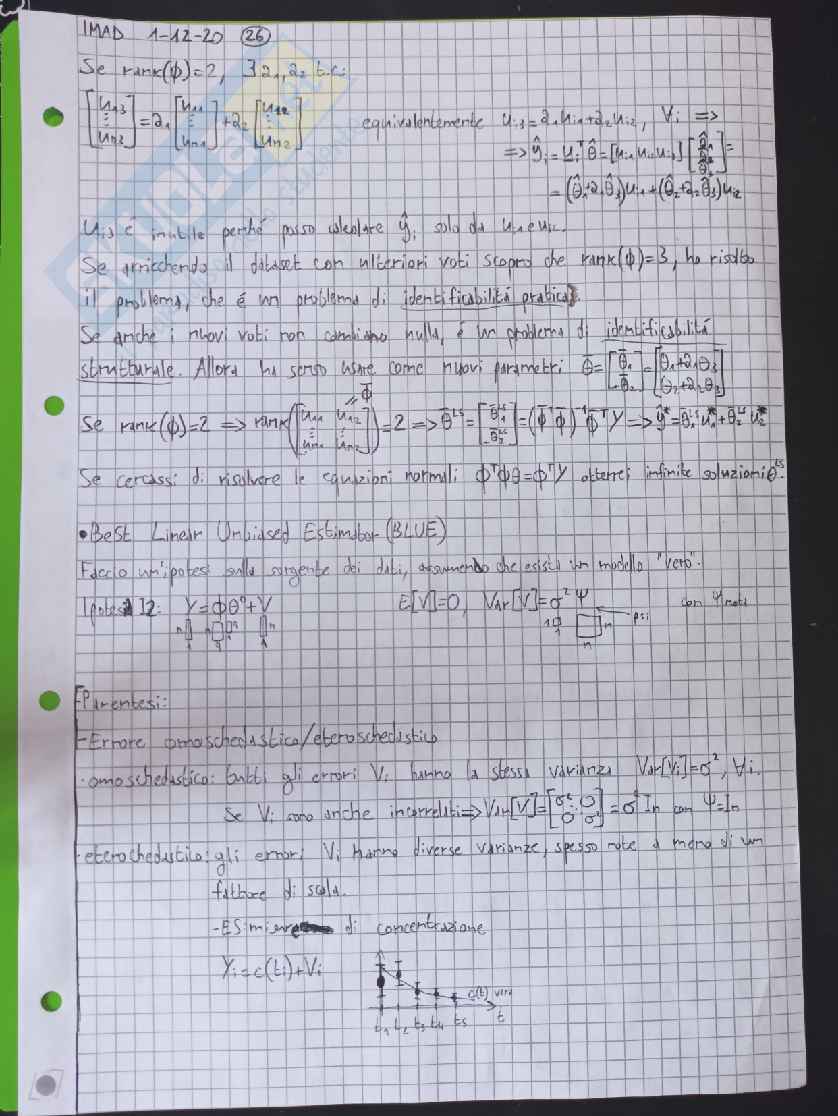 IMAD 1-12-20 (26)
Se rank(ϕ)=2, ∃ a₁, a₂ t.c.:
[u₁₃ ⋮ uₙ₃] = a₁ [u₁₁ ⋮ uₙ₁] + a₂ [u₁₂ ⋮ uₙ₂] equivalentemente uᵢ₃ = a₁uᵢ₁+a₂uᵢ₂, ∀i =>
=> ŷᵢ = uᵢᵀθ̂ = [uᵢ₁ uᵢ₂ uᵢ₃] [θ̂₁ θ̂₂ θ̂₃] =
= (θ̂₁+a₁θ̂₃)uᵢ₁ + (θ̂₂+a₂θ̂₃)uᵢ₂
uᵢ₃ é inutile perché posso calcolare ŷᵢ solo da uᵢ₁ e uᵢ₂.
Se arricchendo il dataset con ulteriori voti scopro che rank(ϕ)=3, ho risolto
il problema, che é un problema di identificabilitá pratica.
Se anche i nuovi voti non cambiano nulla, é un problema di identificabilitá
strutturale. Allora ha senso usare come nuovi parametri θ̄ = [θ̄₁ θ̄₂] = [θ₁+a₁θ₃ θ₂+a₂θ₃]
Se rank(ϕ)=2 => rank([u₁₁ u₁₂ ⋮ uₙ₁ uₙ₂]) = 2 => θ̄ᴸˢ = [θ̄₁ᴸˢ θ̄₂ᴸˢ] = (ϕ̄ᵀϕ̄)⁻¹ϕ̄ᵀY => ŷ* = θ̄₁ᴸˢu₁* + θ̄₂ᴸˢu₂*
= ϕ̄
Se cercassi di risolvere le equazioni normali ϕᵀϕθ=ϕᵀY otterrei infinite soluzioni θᴸˢ.
• Best Linear Unbiased Estimator (BLUE)
Faccio un'ipotesi sulla sorgente dei dati, assumendo che esista un modello "vero".
Ipotesi I2: Y=ϕθ°+V E[V]=0, Var[V]=σ²Ψ con Ψ nota
psi
n
1
n
n
-Parentesi:
-Errore omoschedastico/eteroschedastico
·omoschedastico: tutti gli errori Vᵢ hanno la stessa varianza Var[Vᵢ]=σ², ∀i.
Se Vᵢ sono anche incorrelati => Var[V] = [σ² 0 ⋱ 0 σ²] = σ²Iₙ con Ψ=Iₙ
·eterochedastico: gli errori Vᵢ hanno diverse varianze, spesso note a meno di un
fattore di scala.
-ES: di concentrazione
Yᵢ=c(tᵢ)+Vᵢ
c(t) vera
t₁ t₂ t₃ t₄ t₅ t